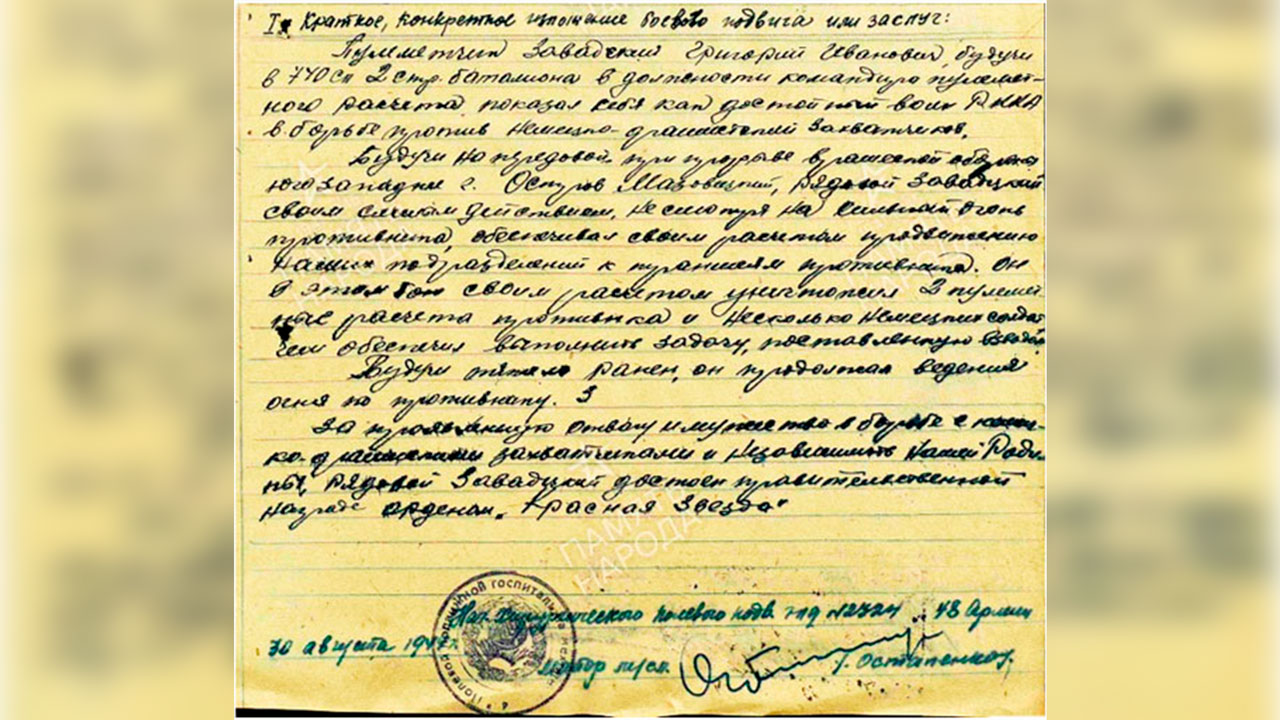 I. Краткое, конкретное изложение боевого подвига или заслуг:
Пулеметчик Завадский Григорий Иванович, будучи
в 740 сп 2 стр. баталиона в должности командира пулемет-
ного расчета показал себя как достойный воин РККА
в борьбе против немецко-фашистских захватчиков.
Будучи на передовой при прорыве вражеской
юго западнее г. Остров Мазовецкий, рядовой Завадский
своим действием, не смотря на сильный огонь
противника, обеспечивал своим расчетом продвижению
наших подразделений к траншеям противника. Он
в этом бою своим расчетом уничтожил 2 пулемет
ные расчета противника и несколько немецких солдат
чем обеспечил выполнить задачу, поставленную
Будучи тяжело ранен, он продолжал ведения
огня по противнику. З
За проявленную отвагу и мужество в борьбе с
захватчиками и независимость нашей Роди-
ны, рядовой Завадский достоен правительственной
награде орденом „Красная Звезда"
ПАМЯТЬ
НАРОДА
Нач. Хирургического полевого подв. №2724 48 Армии
30 августа 1944 г.
Майор м/сл. Г. Остапенко